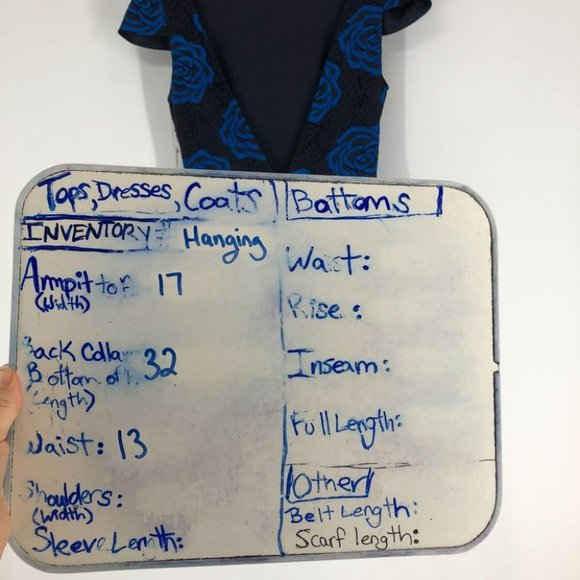 Tops, Dresses, Coats
INVENTORY# Hanging
Armpit to 17
(Width)
Back Colla 32
Bottom of
Length)
Waist: 13
Shoulders:
(Width)
Sleeve Length:
Bottoms
Waist:
Rise:
Inseam:
Full Length:
Other
Belt Length:
Scarf length: